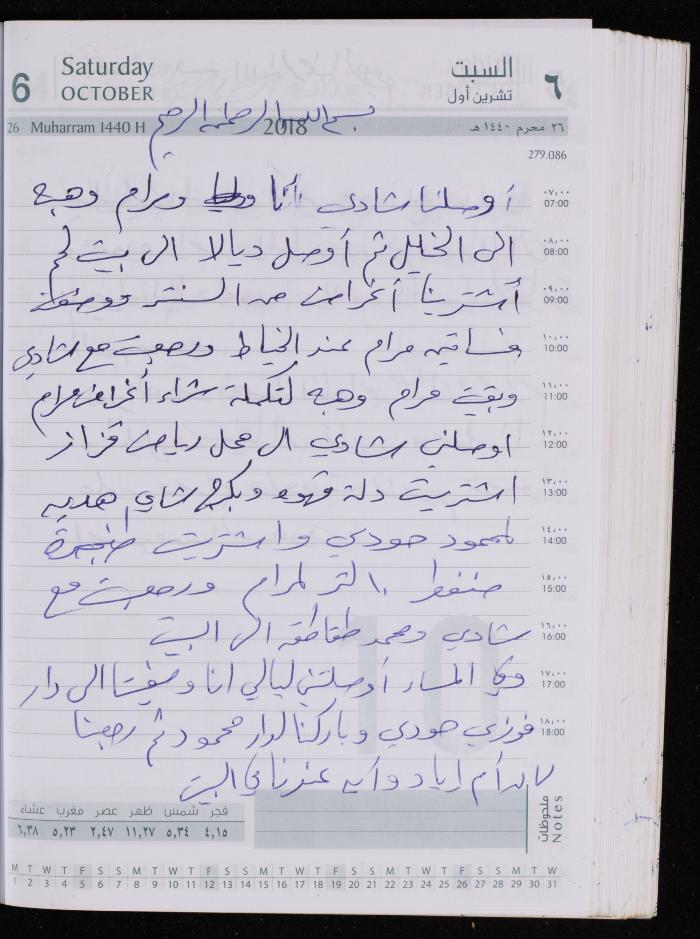 6 Saturday السبت ٦
OCTOBER تشرين أول
26 Muharram 1440 H 2018 ٢٦ محرم ١٤٤٠ هـ
بسم الله الرحمن الرحيم
279.086
أوصلنا شادي أنا ومرام وهبه
٠٧,٠٠ 07:00
الى الخليل ثم أوصل ديالا الى بيت لحم
٠٨,٠٠ 08:00
أشترينا أغراض من السنتر
٠٩,٠٠ 09:00
فساتين مرام عند الخياط ورجعت مع شادي
١٠,٠٠ 10:00
وبقيت مرام وهبه لتكملة شراء أغراض مرام
١١,٠٠ 11:00
اوصلني شادي الى محل رياض قزاز
١٢,٠٠ 12:00
اشتريت دلة قهوه وبكرج شاي هديه
١٣,٠٠ 13:00
لمحمود حودي واشتريت طنجرة
١٤,٠٠ 14:00
ضغط ١٠ لتر لمرام ورجعت مع
١٥,٠٠ 15:00
شادي ومحمد طقاطقه الى البيت
١٦,٠٠ 16:00
وفي المساء أوصلتني ليالي انا الى دار
١٧,٠٠ 17:00
فوزي حودي وباركنا لدار محمود ثم رجعنا
١٨,٠٠ 18:00
أم اياد عندنا في البيت
ملحوظات Notes
فجر شمس ظهر عصر مغرب عشاء
٤,١٥ ٥,٣٤ ١١,٢٧ ٢,٤٧ ٥,٢٣ ٦,٣٨
M T W T F S S M T W T F S S M T W T F S S M T W T F S S M T W
1 2 3 4 5 6 7 8 9 10 11 12 13 14 15 16 17 18 19 20 21 22 23 24 25 26 27 28 29 30 31